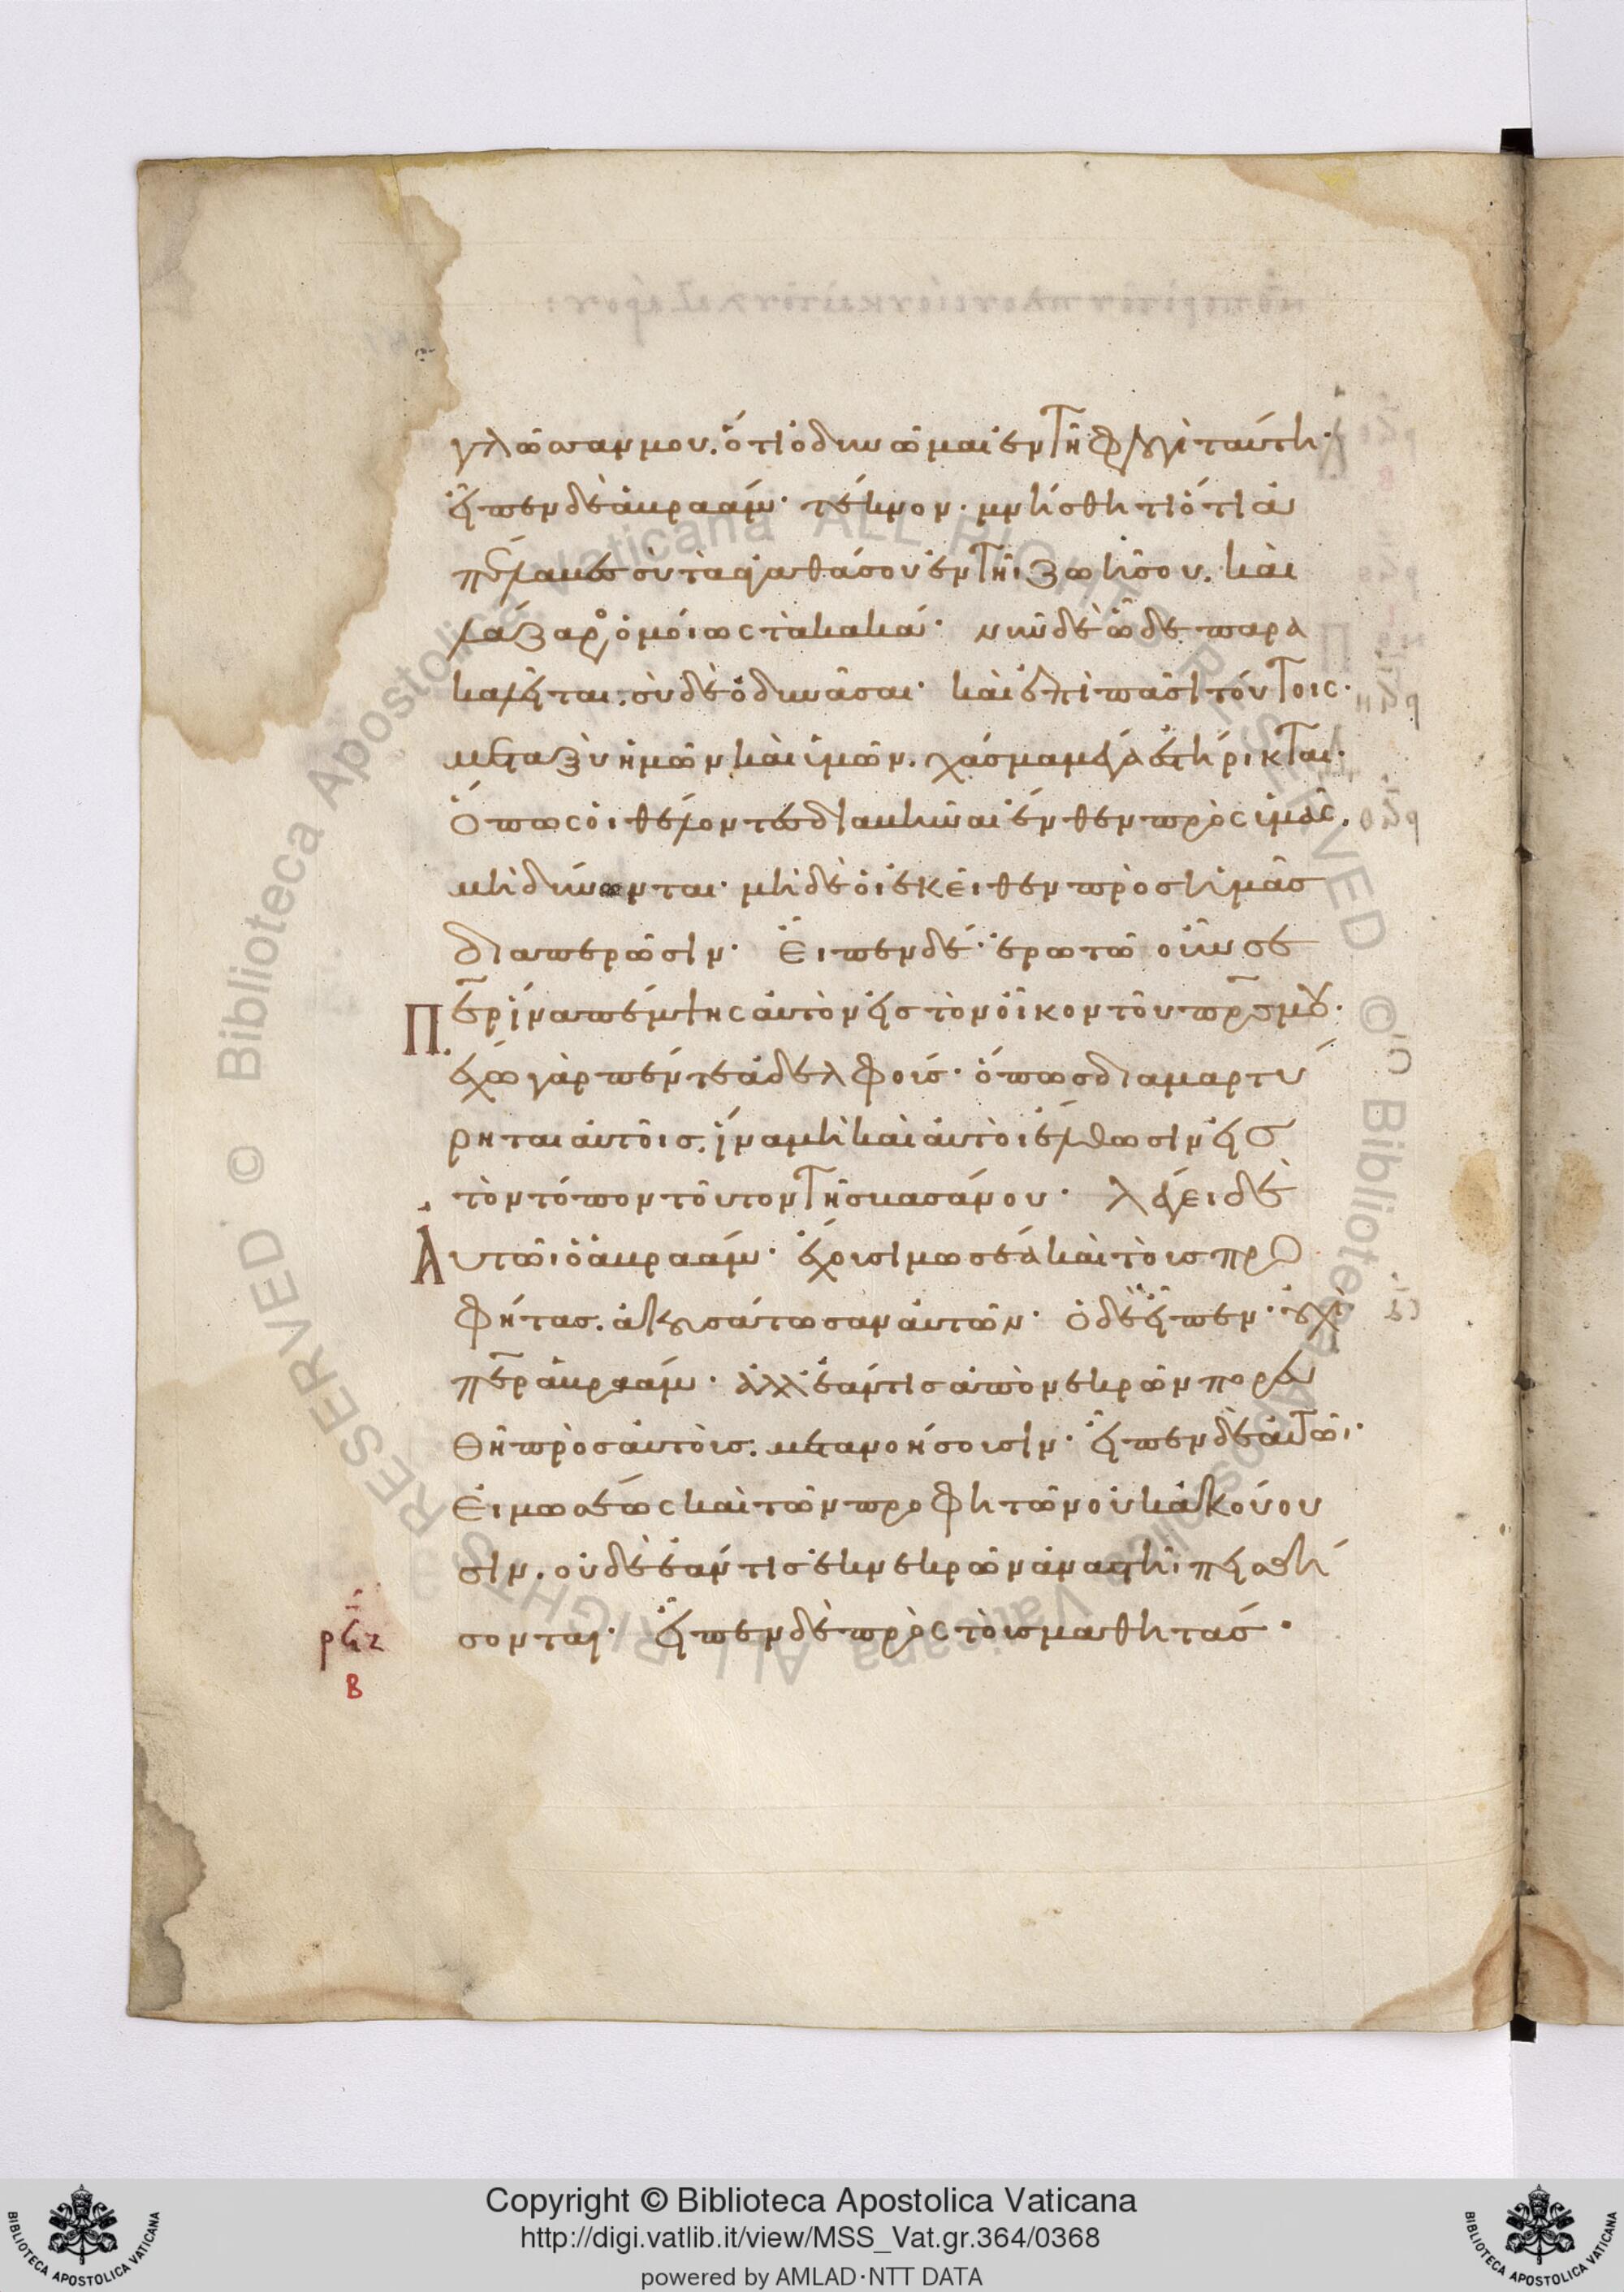 γλῶσσαν μου. ὅτι ὀδυνῶμαι ἐν τῆ φλογὶ ταύτη·
εἶπεν δὲ ἀβραάμ· τέκνον· μνήσθητι ὅτι ἀ
πέλαβες σὺ τὰ ἀγαθά σου ἐν τῆι ζωῆ σου. καὶ
λάζαρος ὁμοίως τὰ κακά· νῦν δὲ ὧδε παρα
καλεῖται. σὺ δὲ ὀδυνᾶσαι· καὶ ἐπὶ πᾶσι τούτοις·
μεταξὺ ἡμῶν καὶ ὑμῶν. χάσμα μέγα ἐστήρικται·
ὅπως οἱ θέλοντες διαβῆναι ἔνθεν πρὸς ὑμᾶς.
μὴ δύνωνται· μὴ δὲ οἱ ἐκεῖθεν πρὸς ἡμᾶς
διαπερῶσιν· Εἶπεν δέ· ἐρωτῶ οὖν σε
Περ ἵνα πέμψης αὐτὸν εἰς τὸν οἶκον τοῦ πρς μου·
ἔχω γὰρ πέντε ἀδελφούς· ὅπως διαμαρτύ
ρηται αὐτοῖς. ἵνα μὴ καὶ αὐτοὶ ἔλθωσιν εἰς
τὸν τόπον τοῦτον τῆς βασάνου· λέγει δὲ
Αὐτῶι ὁ ἀβραάμ· ἔχουσι μωσέα καὶ τοὺς προ
φήτας. ἀκουσάτωσαν αὐτῶν· ὁ δὲ εἶπεν· οὐχὶ
περ ἀβραάμ· ἀλλ' ἐάν τις ἀπὸ νεκρῶν πορευ
θῆ πρὸς αὐτοὺς. μετανοήσουσιν· εἶπεν δὲ αὐτῶι·
Εἰ μωσέως καὶ τῶν προφητῶν οὐκ ἀκούου
σιν. οὐδὲ ἐάν τις ἐκ νεκρῶν ἀναστῆι πεισθή
ρϟζ σονται· εἶπεν δὲ πρὸς τοὺς μαθητάς·
β
Copyright © Biblioteca Apostolica Vaticana
http://digi.vatlib.it/view/MSS_Vat.gr.364/0368
powered by AMLAD·NTT DATA